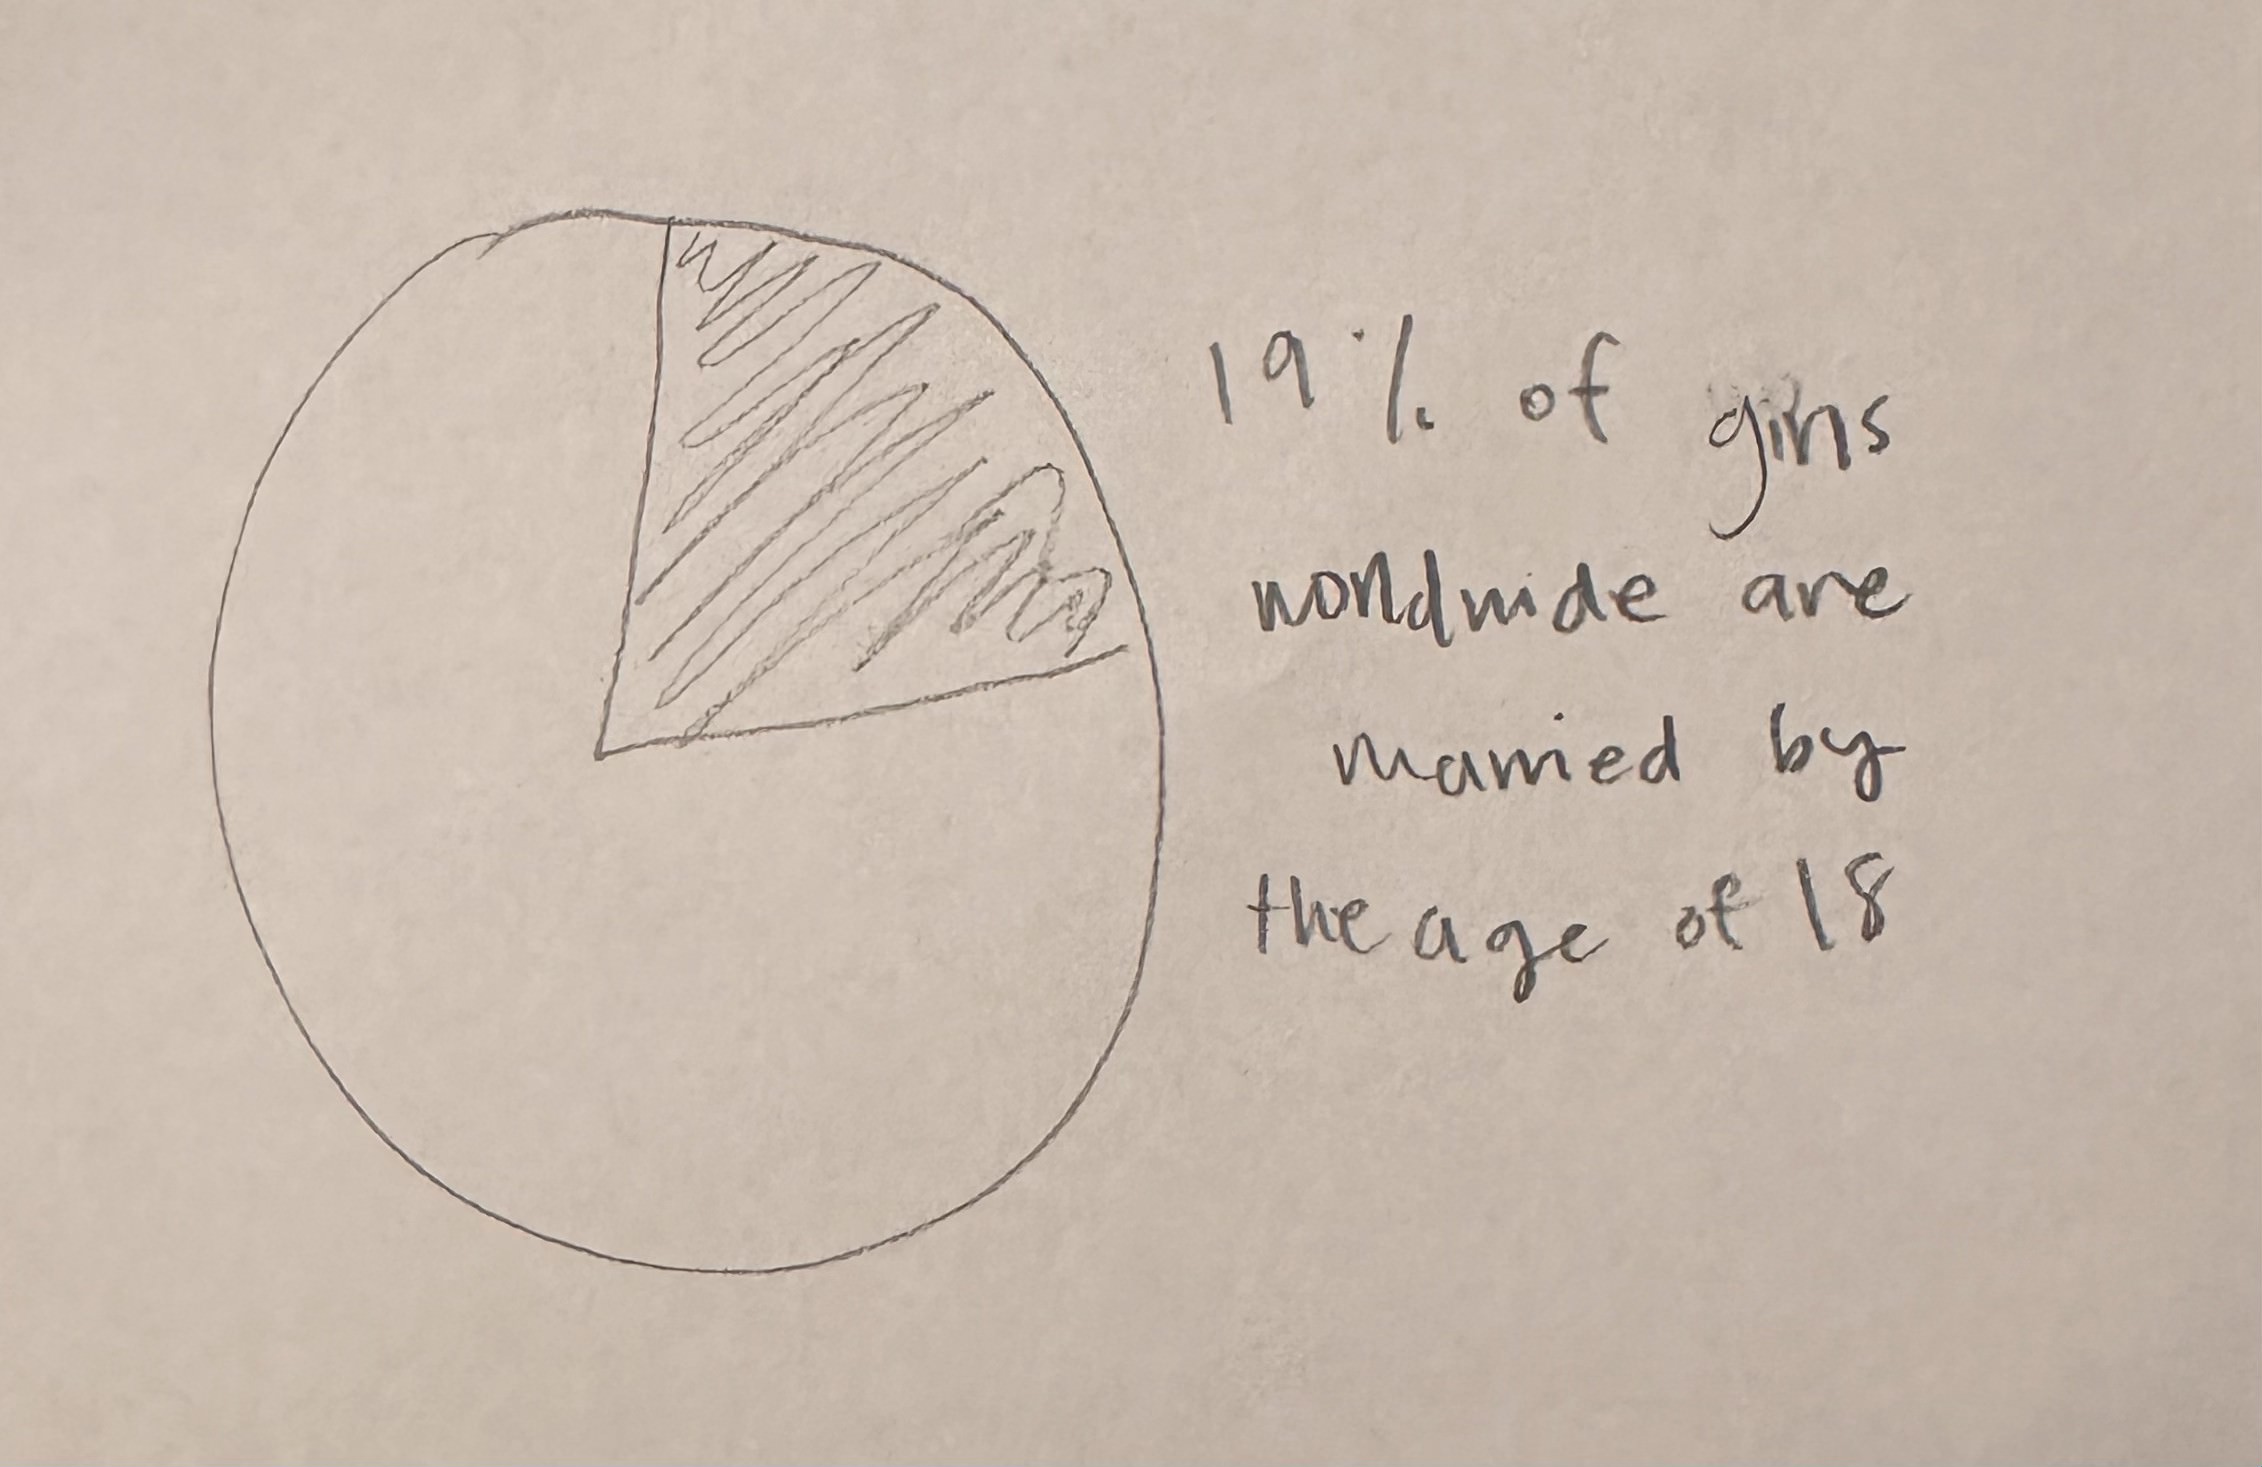 19% of girls
worldwide are
married by
the age of 18